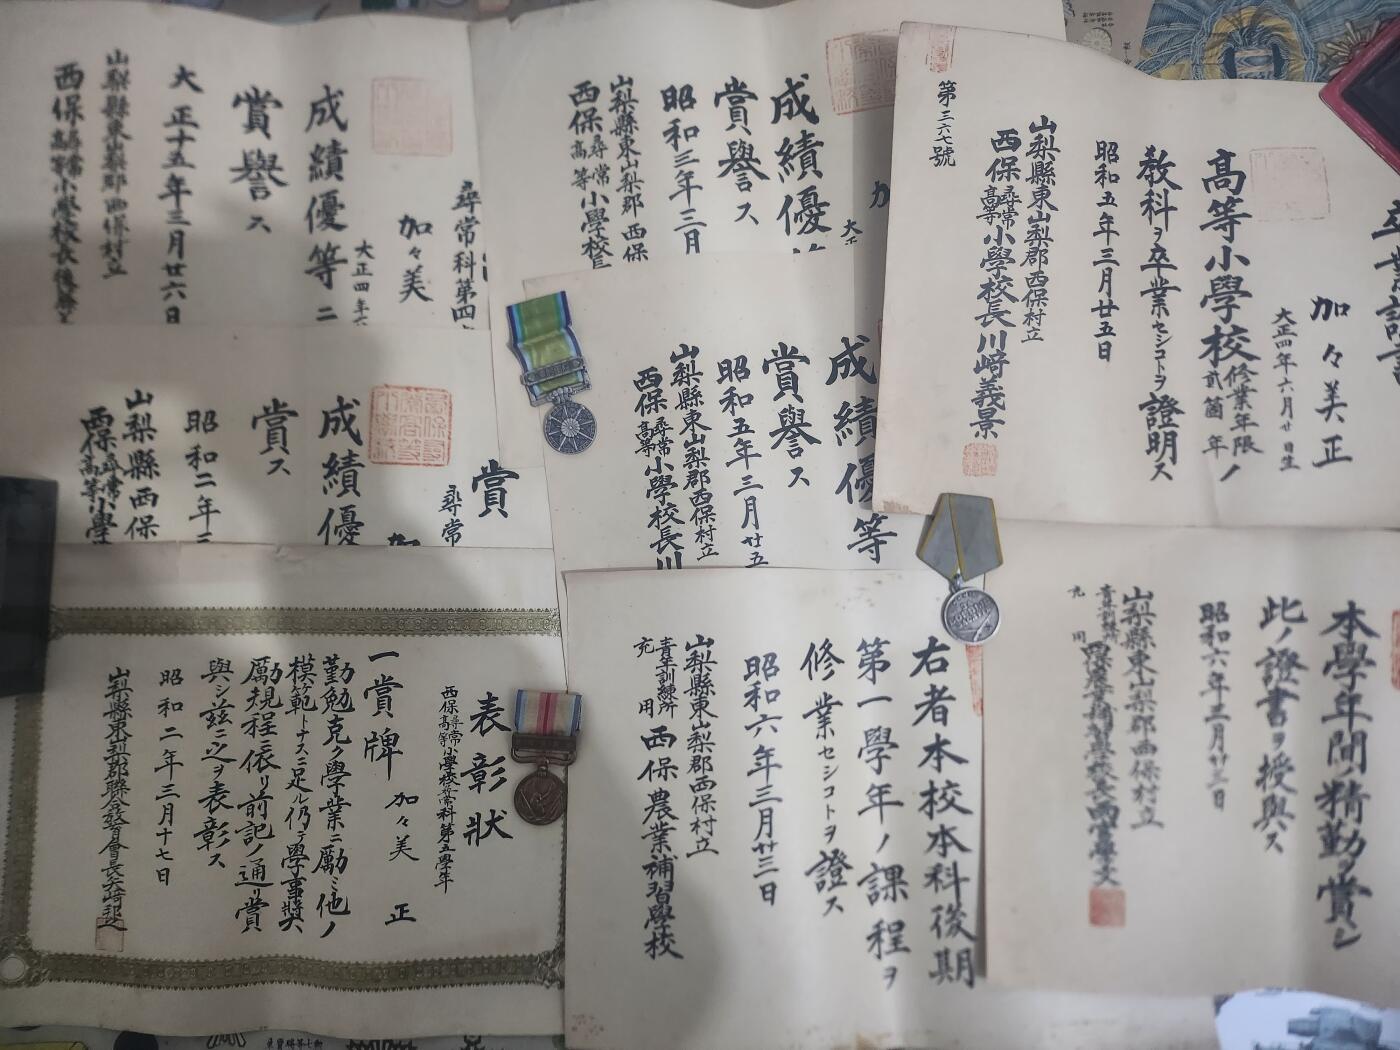 尋常科第四
加々美
大正四年六
成績優等ニ
賞譽ス
大正十五年三月廿六日
山梨縣東山梨郡西保村立
西保尋常高等小學校長後
加
大正
成績優等
賞譽ス
昭和三年三月
山梨縣東山梨郡西保
西保尋常高等小學校長
卒業證書
加々美正
大正四年六月廿日生
高等小學校修業年限貳箇年ノ
教科ヲ卒業セシコトヲ證明ス
昭和五年三月廿五日
山梨縣東山梨郡西保村立
西保尋常高等小學校長川﨑義景
第三六七號
賞
尋常
加
成績優
賞ス
昭和二年三
山梨縣西保
西保尋常高等小學
成績優等
賞譽ス
昭和五年三月廿五
山梨縣東山梨郡西保村立
西保尋常高等小學校長川
表彰狀
西保尋常高等小學校尋常科第五學年
加々美正
一賞牌
勤勉克ク學業ニ勵ミ他ノ
模範トナスニ足ル仍テ學事奬
勵規程依リ前記ノ通リ賞
與シ玆ニ之ヲ表彰ス
昭和二年三月十七日
山梨縣東山梨郡聯合敎育會長矢崎
右者本校本科後期
第一學年ノ課程ヲ
修業セシコトヲ證ス
昭和六年三月廿三日
山梨縣東山梨郡西保村立
青年訓練所充用西保農業補習學校
本學年間ノ精勤ヲ賞シ
此ノ證書ヲ授與ス
昭和六年三月廿三日
山梨縣東山梨郡西保村立
青年訓練所充用西保農業補習學校長